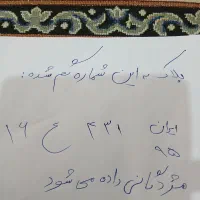 پلاک به این شماره گم شده:
ایران ۴۳۱ ع ۱۶
۹۵
مژدگانی داده می شود